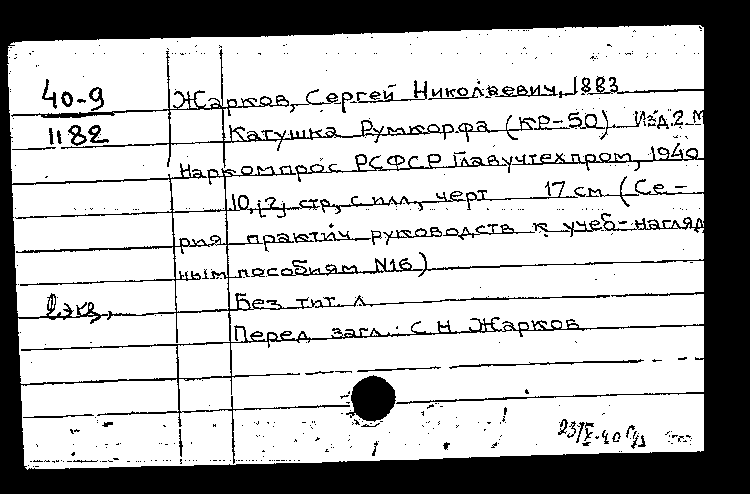 40-9
1182
Жарков, Сергей Николаевич, 1883
Катушка Румкорфа (КР-50). Изд. 2. М
Наркомпрос РСФСР Главучтехпром, 1940
10, [2] стр., с илл., черт 17 см (Се-
рия практич. руководств к учеб-нагляд
ным пособиям №16)
2 экз.
Без тит. л.
Перед загл.: С Н Жарков